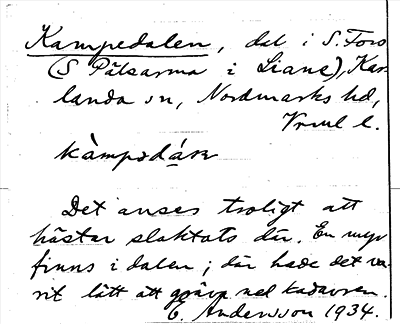 Kampedalen, dal i S. Foro
(S Pålsarma i Liane), Kar-
landa sn, Nordmarks hd,
Vrml l.
kàmpədáɳ
Det anses troligt att
hästar slaktats där. En myr
finns i dalen; där hade det va-
rit lätt att gräva ned kadavren.
E. Andersson 1934.